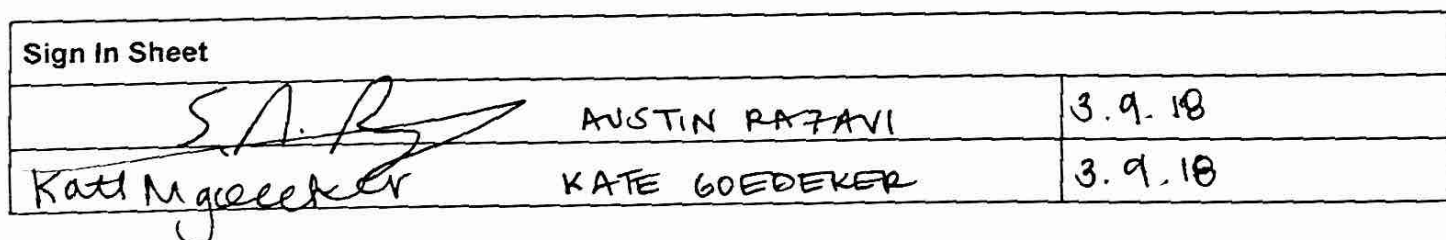 Sign In Sheet
S. A. R AUSTIN RAZAVI 3.9.18
Kate M Goedeker KATE GOEDEKER 3.9.18